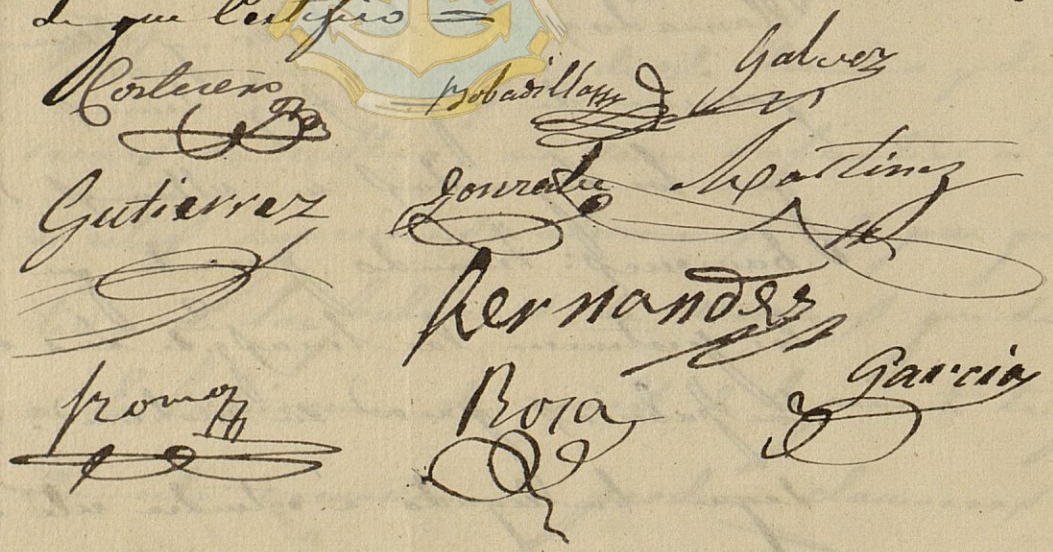 de que Certifico =
Cortecero Bobadilla Galvez
Gutierrez Gonzalez Martinez
Hernandez
Roma Rosa Garcia